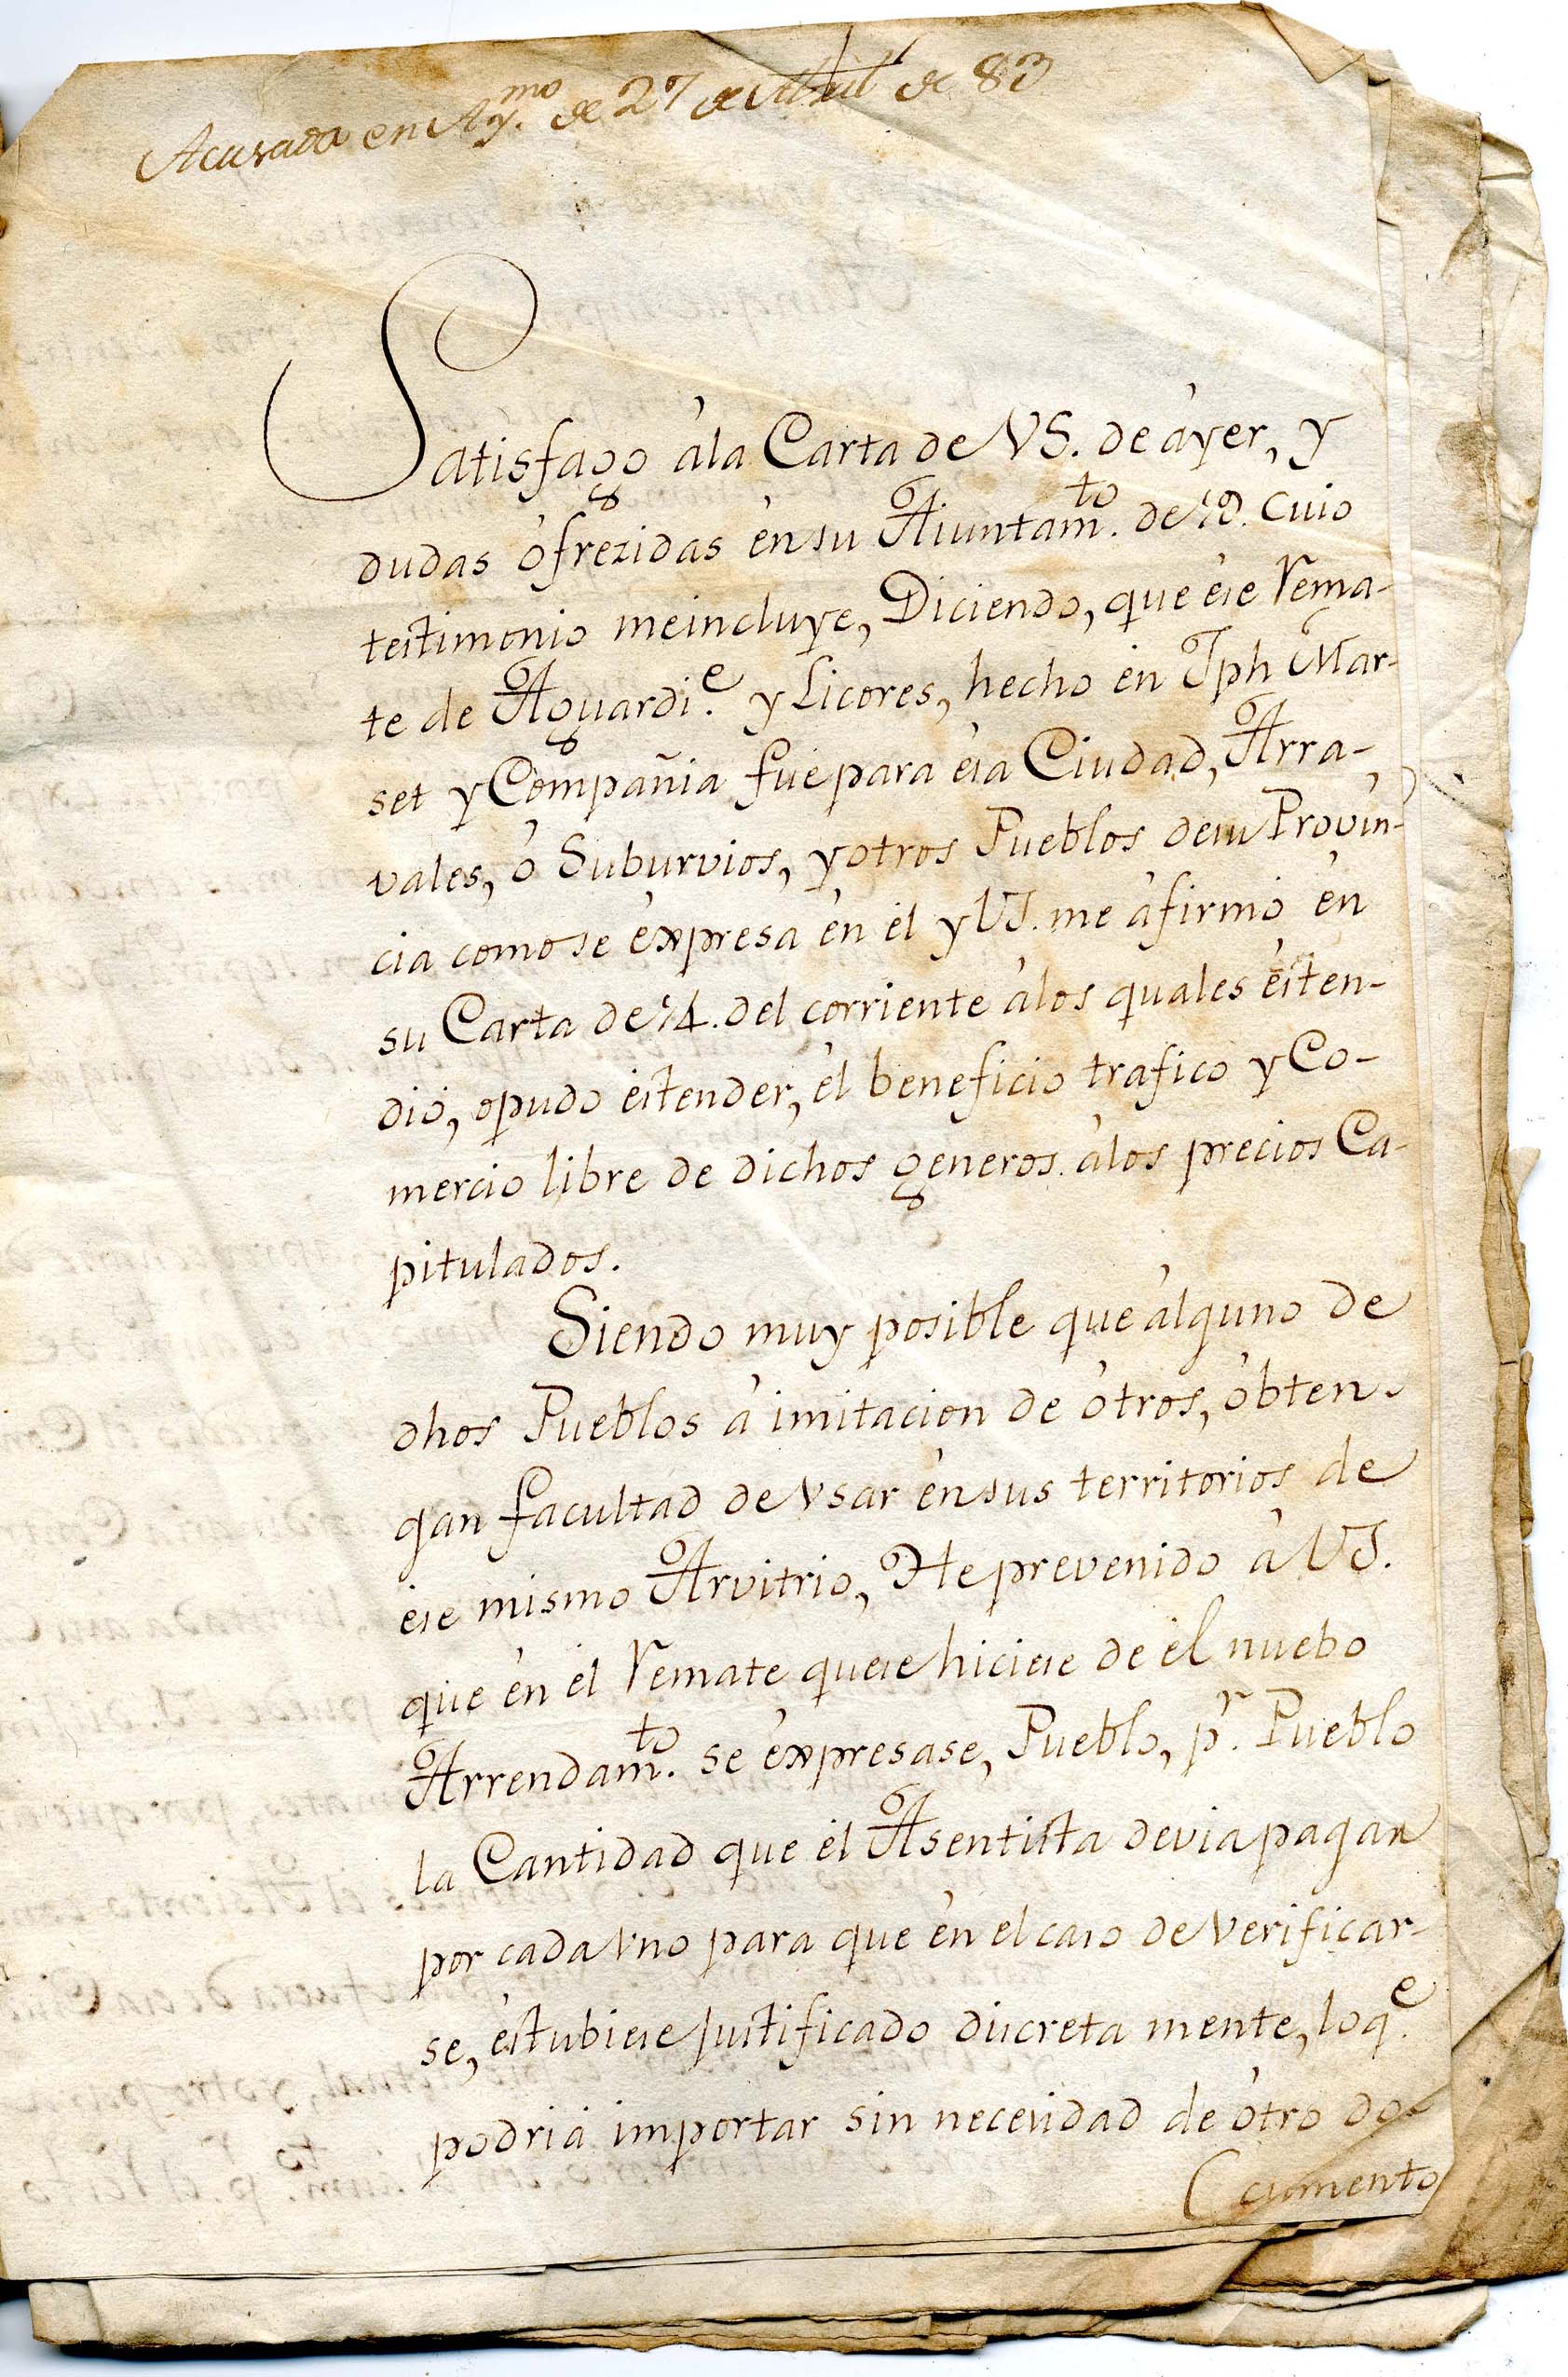 Acusada en Ay.mo de 27 de Abril de 83
Satisfago àla Carta de VS. de àyer, y
dudas òfrezidas èn su Aiuntam.to de 12. cuio
testimonio meincluye, Diciendo, que èse Rema-
te de Aguardi.e y Licores, hecho èn Jph Mar-
set y Compañia fue para èsa Ciudad, Arra-
vales, ò Suburvios, y otros Pueblos de su Provin-
cia como se èxpresa èn èl y VS. me àfirmò èn
su Carta de 14. del corriente àlos quales èsten-
diò, opudo èstender, èl beneficio trafico y Co-
mercio libre de dichos generos àlos precios Ca-
pitulados.
Siendo muy posible que àlguno de
dhos Pueblos à imitacion de òtros, òbten-
gan facultad de vsar èn sus territorios de
èse mismo Arvitrio, He prevenido à VS.
que èn èl Remate quese hiciese de èl nuebo
Arrendam.to se èxpresase, Pueblo, p.r Pueblo
la Cantidad que èl Asentista devia pagar
por cada vno para que èn el caso de verificar-
se, èstubiese justificado discreta mente, loq.e
podrià importar sin necesidad de òtro do-
cumento